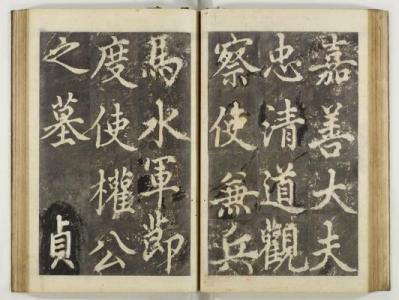 嘉善大夫
忠清道觀
察使兼兵
馬水軍節
度使權公
之墓 貞